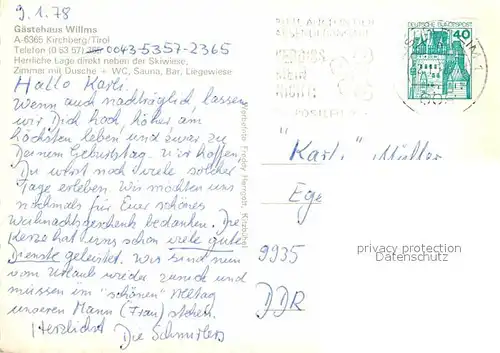 9.1.78
Gästehaus Willms
A-6365 Kirchberg/Tirol
Telefon (0 53 57) 0043-5357-2365
Herrliche Lage direkt neben der Skiwiese,
Zimmer mit Dusche + WC, Sauna, Bar, Liegewiese
Hallo Karli.
Wenn auch nachträglich lassen
wir Dich hoch höher am
höchsten leben und zwar zu
Deinem Geburtstag. Wir hoffen,
Du wirst noch viele solcher
Tage erleben. Wir möchten uns
nochmals für Euer schönes
Weihnachtsgeschenk bedanken. Die
Kerze hat uns schon viele gute
Dienste geleistet. Wir sind nun
vom Urlaub wieder zurück und
müssen im "schönen" Alltag
unseren Mann (Frau) stehen.
Herzlichst Die
DEUTSCHE BUNDESPOST
40
VERGISS
MEIN
NICHT
"Karl" Müller
Ege
9935
DDR
privacy protection
Datenschutz